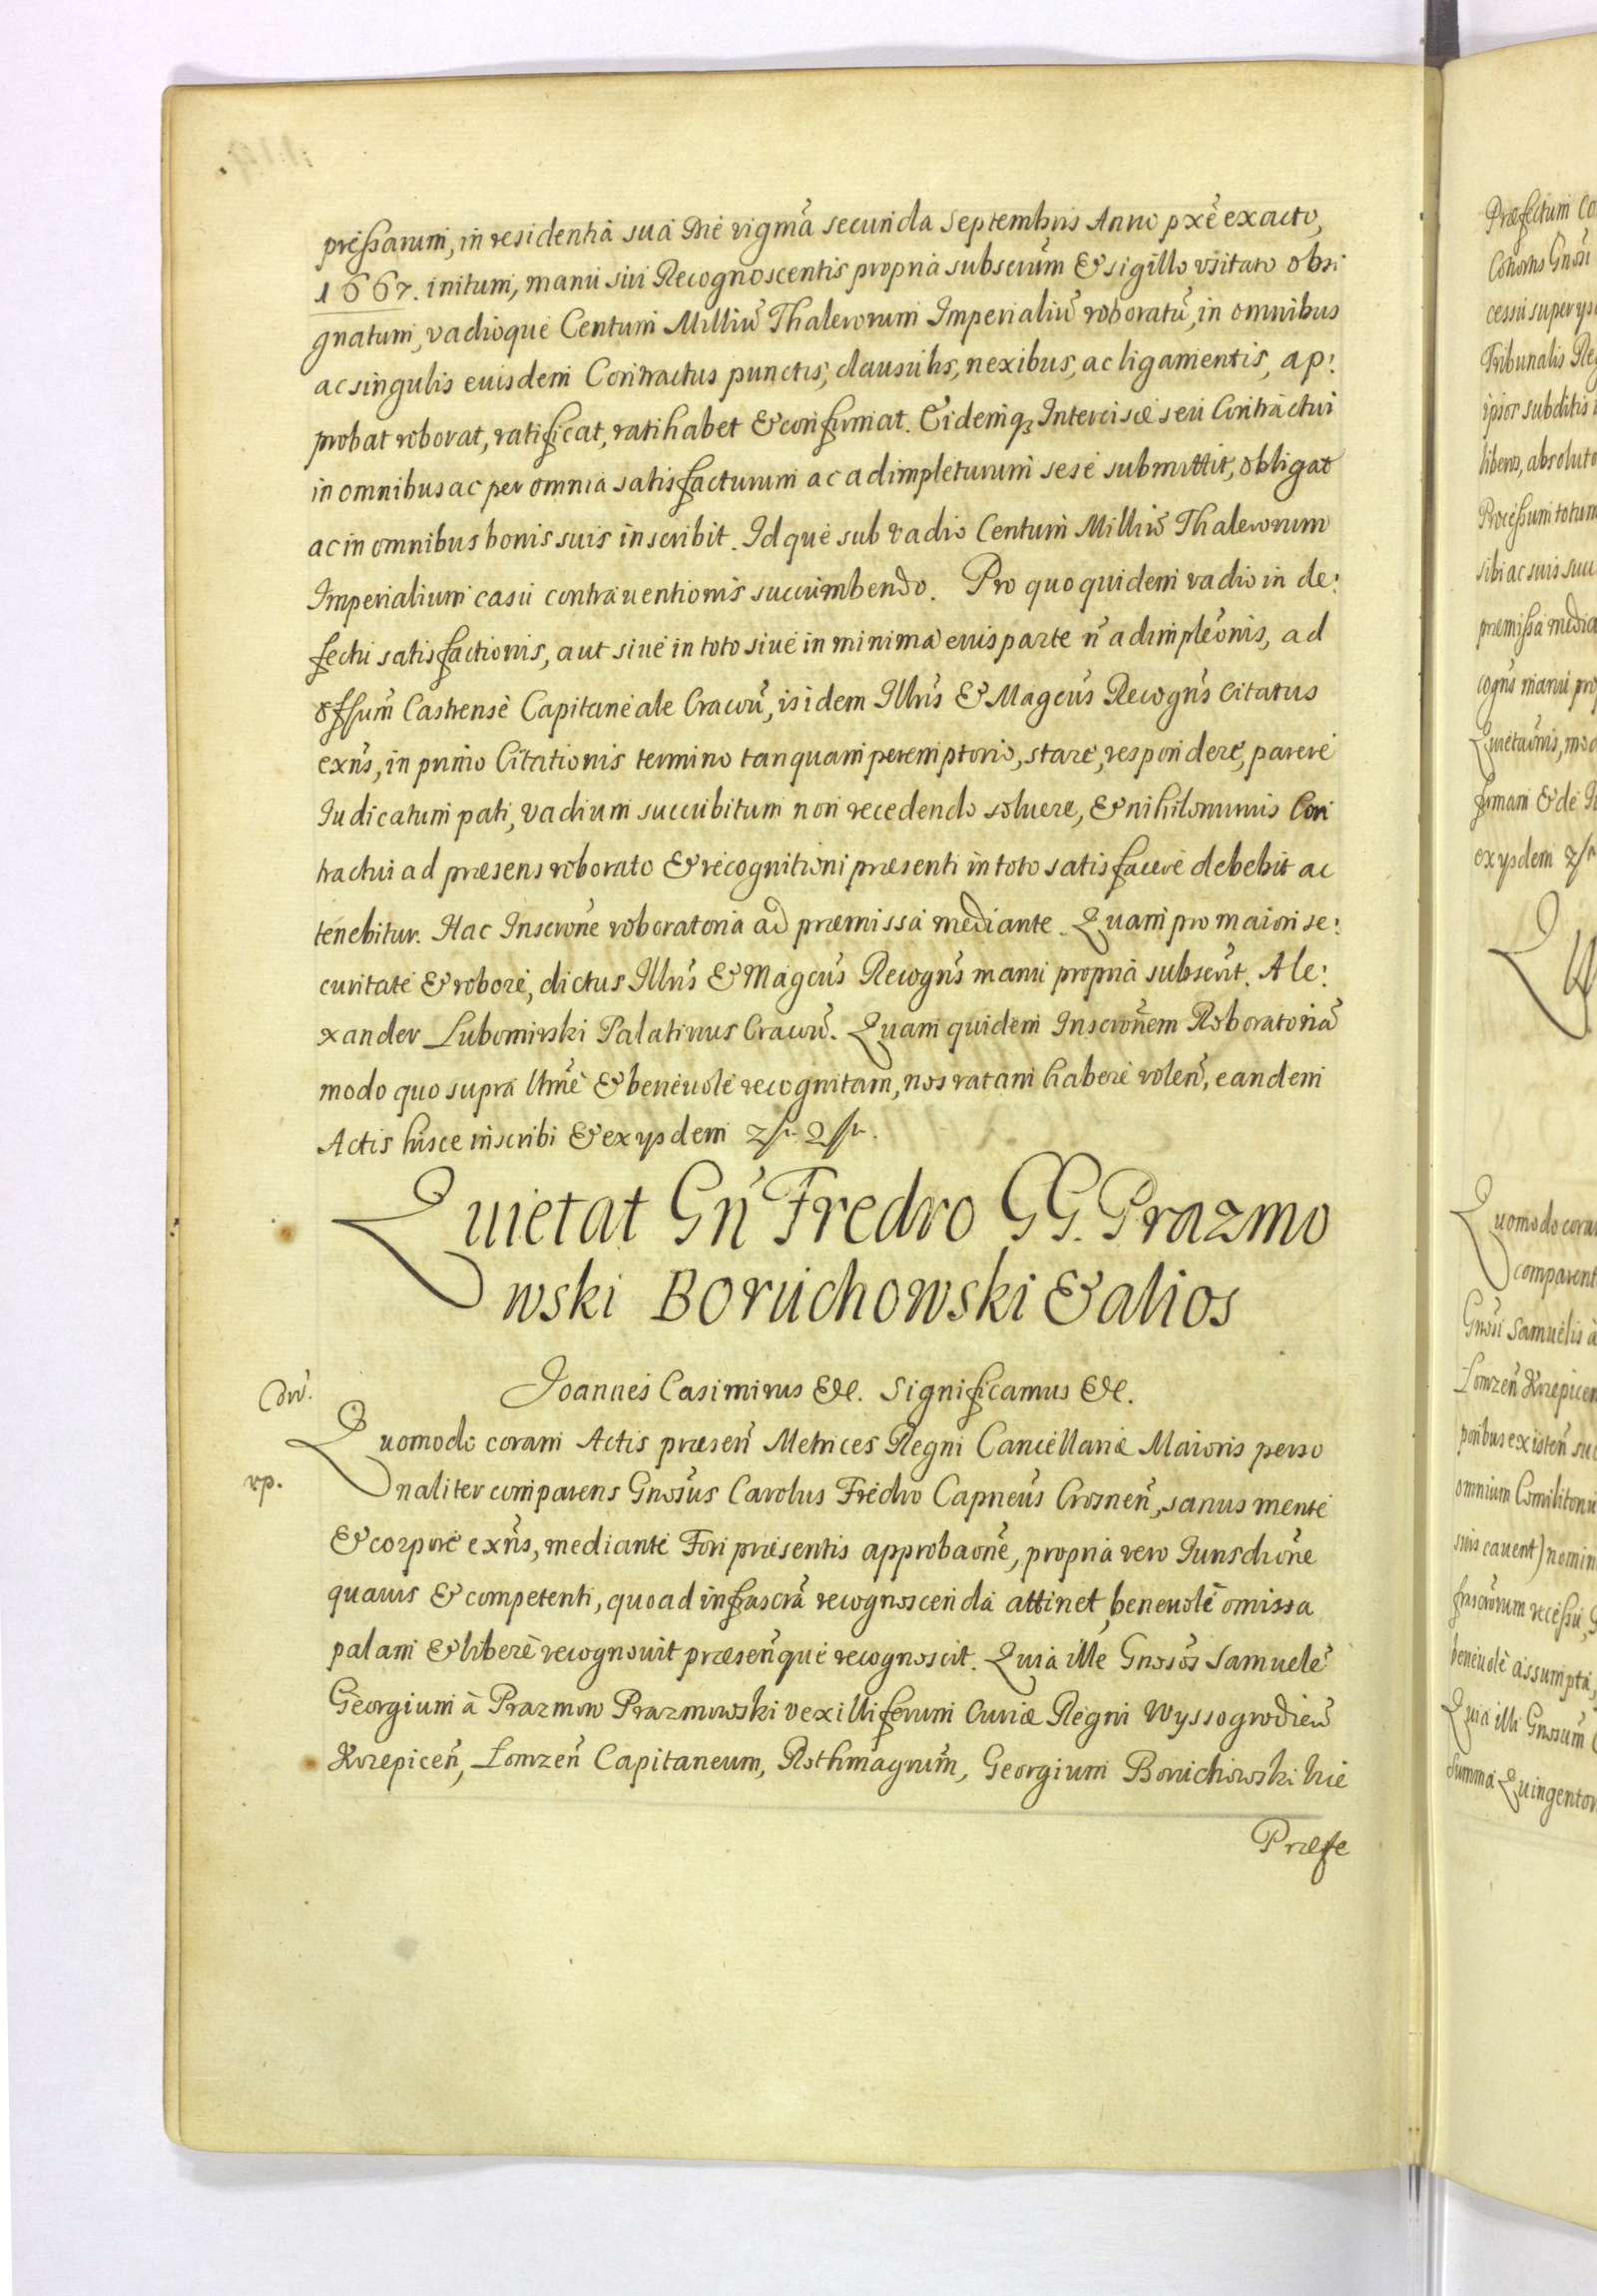 preſsarum, in residentia sua Die vigmā secunda Septembris Anno pxē exacto,
1667. initum, manu sui Recognoscentis propria subscrūm & sigillo vsitato obsi
gnatum, vadioque Centum Milliū Thalerorum Imperialiū roboratū, in omnibus
ac singulis euisdem Contractus punctis, clausulis, nexibus, ac ligamentis, ap:
probat roborat, ratificat, ratihabet & confirmat. Eidemq₃ Intercisæ seu Contractui
in omnibus ac per omnia satisfacturum ac adimpleturum sese submittit, obligat
ac in omnibus bonis suis inscribit. Idque sub vadio Centum Milliū Thalerorum
Imperialium casu contrauentionis succumbendo. Pro quo quidem vadio in de:
fectu satisfactionis, aut siue in toto siue in minima euis parte n̄ adimpleōnis, ad
offum̄ Castrense Capitaneale Cracou̅, isidem Illrīs & Magcūs Recogn̄s Citatus
exn̄s, in primo Citationis termino tanquam peremptorio, stare, respondere, parere
Iudicatum pati, vadium succubitum non recedendo soluere, & nihilominus Con
tractui ad præsens roborato & recognitioni præsenti in toto satisfacere debebit ac
tenebitur. Hac Inscrōne roboratoria ad præmissa mediante. Quam pro maiori se:
curitate & robore, dictus Illrīs & Magcūs Recogn̄s manu propria subscrīt. Ale:
xander Lubomirski Palatinus Cracou̅. Quam quidem Inscrōnem Roboratoriā
modo quo supra l̄tmē & beneuole recognitam, nos ratam habere volen̄, eandem
Actis hisce inscribi & ex ysdem
Quietat Gn̄ Fredro GG. Prazmo
wski Boruchowski & alios
Joannes Casimirus &c. Significamus &c.
Cor̄.
Quomodo coram Actis præsen̄ Metrices Regni Cancellariæ Maioris perso
rp.
naliter comparens Gnōsus Carolus Fredro Capneūs Crosnen̄, sanus mente
& corpore exn̄s, mediante Fori præsentis approbaōne, propria vero Iurisdiōne
quauis & competenti, quoad infrascrā recognoscenda attinet, beneuole omissa
palam & libere recognouit præsen̄que recognoscit. Quia ille Gnōsos Samuelē
Georgium à Prazmow Prazmowski vexilliferum Curiæ Regni Wyssogrodien̄
Krzepicen̄, Lomzen̄ Capitaneum, Rothmagrum̄, Georgium Boruchowski hie
Præfe
Præfectum Co
Cohortis Gnōsi
cessu super ys
Tribunalis Reg
ipsor subditis
liberos, absoluto
Proceſsum totum
sibi ac suis suc
præmiſsa media
cogn̄s manu prop
Quietaōnis, mo
firmam & de I
ex ysdem
Quomodo cora
comparent
Gnōsi Samuelis à
Lomzen̄ Krzepicen
omnium Comilitonū
suis cauent) nomin
beneuole assumpta,
Quia illi Gnosum̄
Summa Quingentor